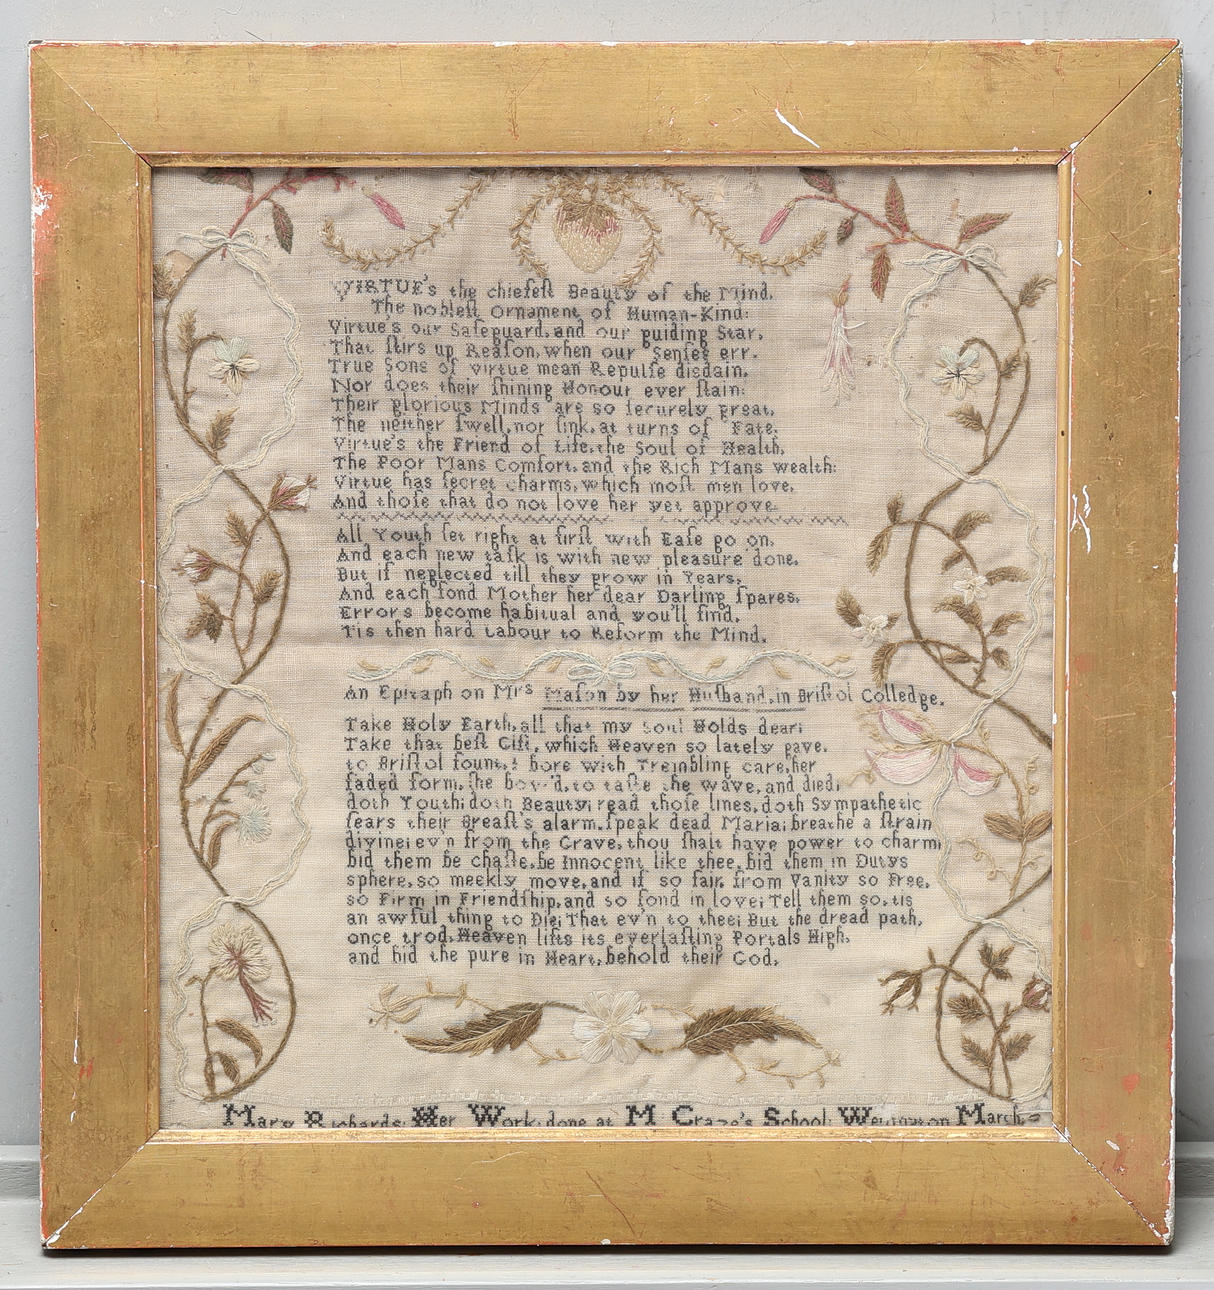 VIRTUE's the chiefeſt Beauty of the Mind,
The nobleſt Ornament of Human-Kind:
Virtue's our Safeguard, and our guiding Star,
That ſtirs up Reaſon, when our Senſes err.
True Sons of virtue mean Repulſe diſdain,
Nor does their ſhining Honour ever ſtain:
Their glorious Minds are so ſecurely great,
The neither ſwell, nor ſink, at turns of Fate.
Virtue's the Friend of Life, the Soul of Health,
The Poor Mans Comfort, and the Rich Mans wealth:
Virtue has ſecret charms, which moſt men love,
And thoſe that do not love her yet approve
All Youth ſet right at firſt with Eaſe go on,
And each new taſk is with new pleasure done,
But if neglected till they grow in Years,
And each fond Mother her dear Darling ſpares,
Errors become habitual and you'll find,
Tis then hard Labour to Reform the Mind.
An Epitaph on Mrs Maſon by her Huſband, in Briſtol Colledge.
Take Holy Earth, all that my Soul Holds dear;
Take that beſt Gift, which Heaven so lately gave,
to Briſtol fount, I bore with Trembling care, her
faded form, ſhe bow'd, to taſte the wave, and died;
doth Youth; doth Beauty; read thoſe lines, doth Sympathetic
fears their Breaſt's alarm, ſpeak dead Maria; breathe a ſtrain
divine; ev'n from the Grave, thou ſhalt have power to charm,
bid them be chaſte, be Innocent like thee, bid them in Dutys
sphere, so meekly move, and if so fair, from Vanity so Free,
so Firm in Friendſhip, and so fond in love; Tell them so, tis
an awful thing to Die; That ev'n to thee; But the dread path,
once trod, Heaven lifts its everlaſting Portals High,
and bid the pure in Heart, behold their God.
Mary Richards: Her Work, done at M School: March